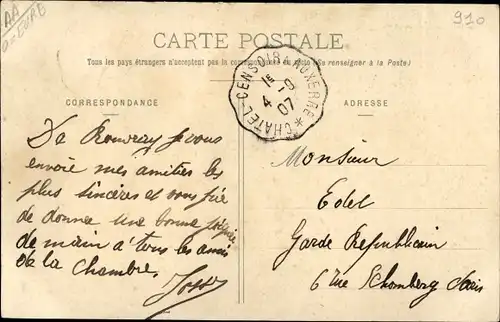 AA
910
CARTE POSTALE
Tous les pays étrangers n'acceptent pas la correspondance au (Se renseigner à la Poste)
CHATEL-CENSOIR AUXERRE *
1E
4 -9
07
CORRESPONDANCE
ADRESSE
De Rouvray je vous
envoie mes amitiés les
plus sincères et vous prie
de donner une bonne poignée
de main à tous les amis
de la Chambre.
Monsieur
Edet
Garde Republicain
6 rue Schomberg Paris